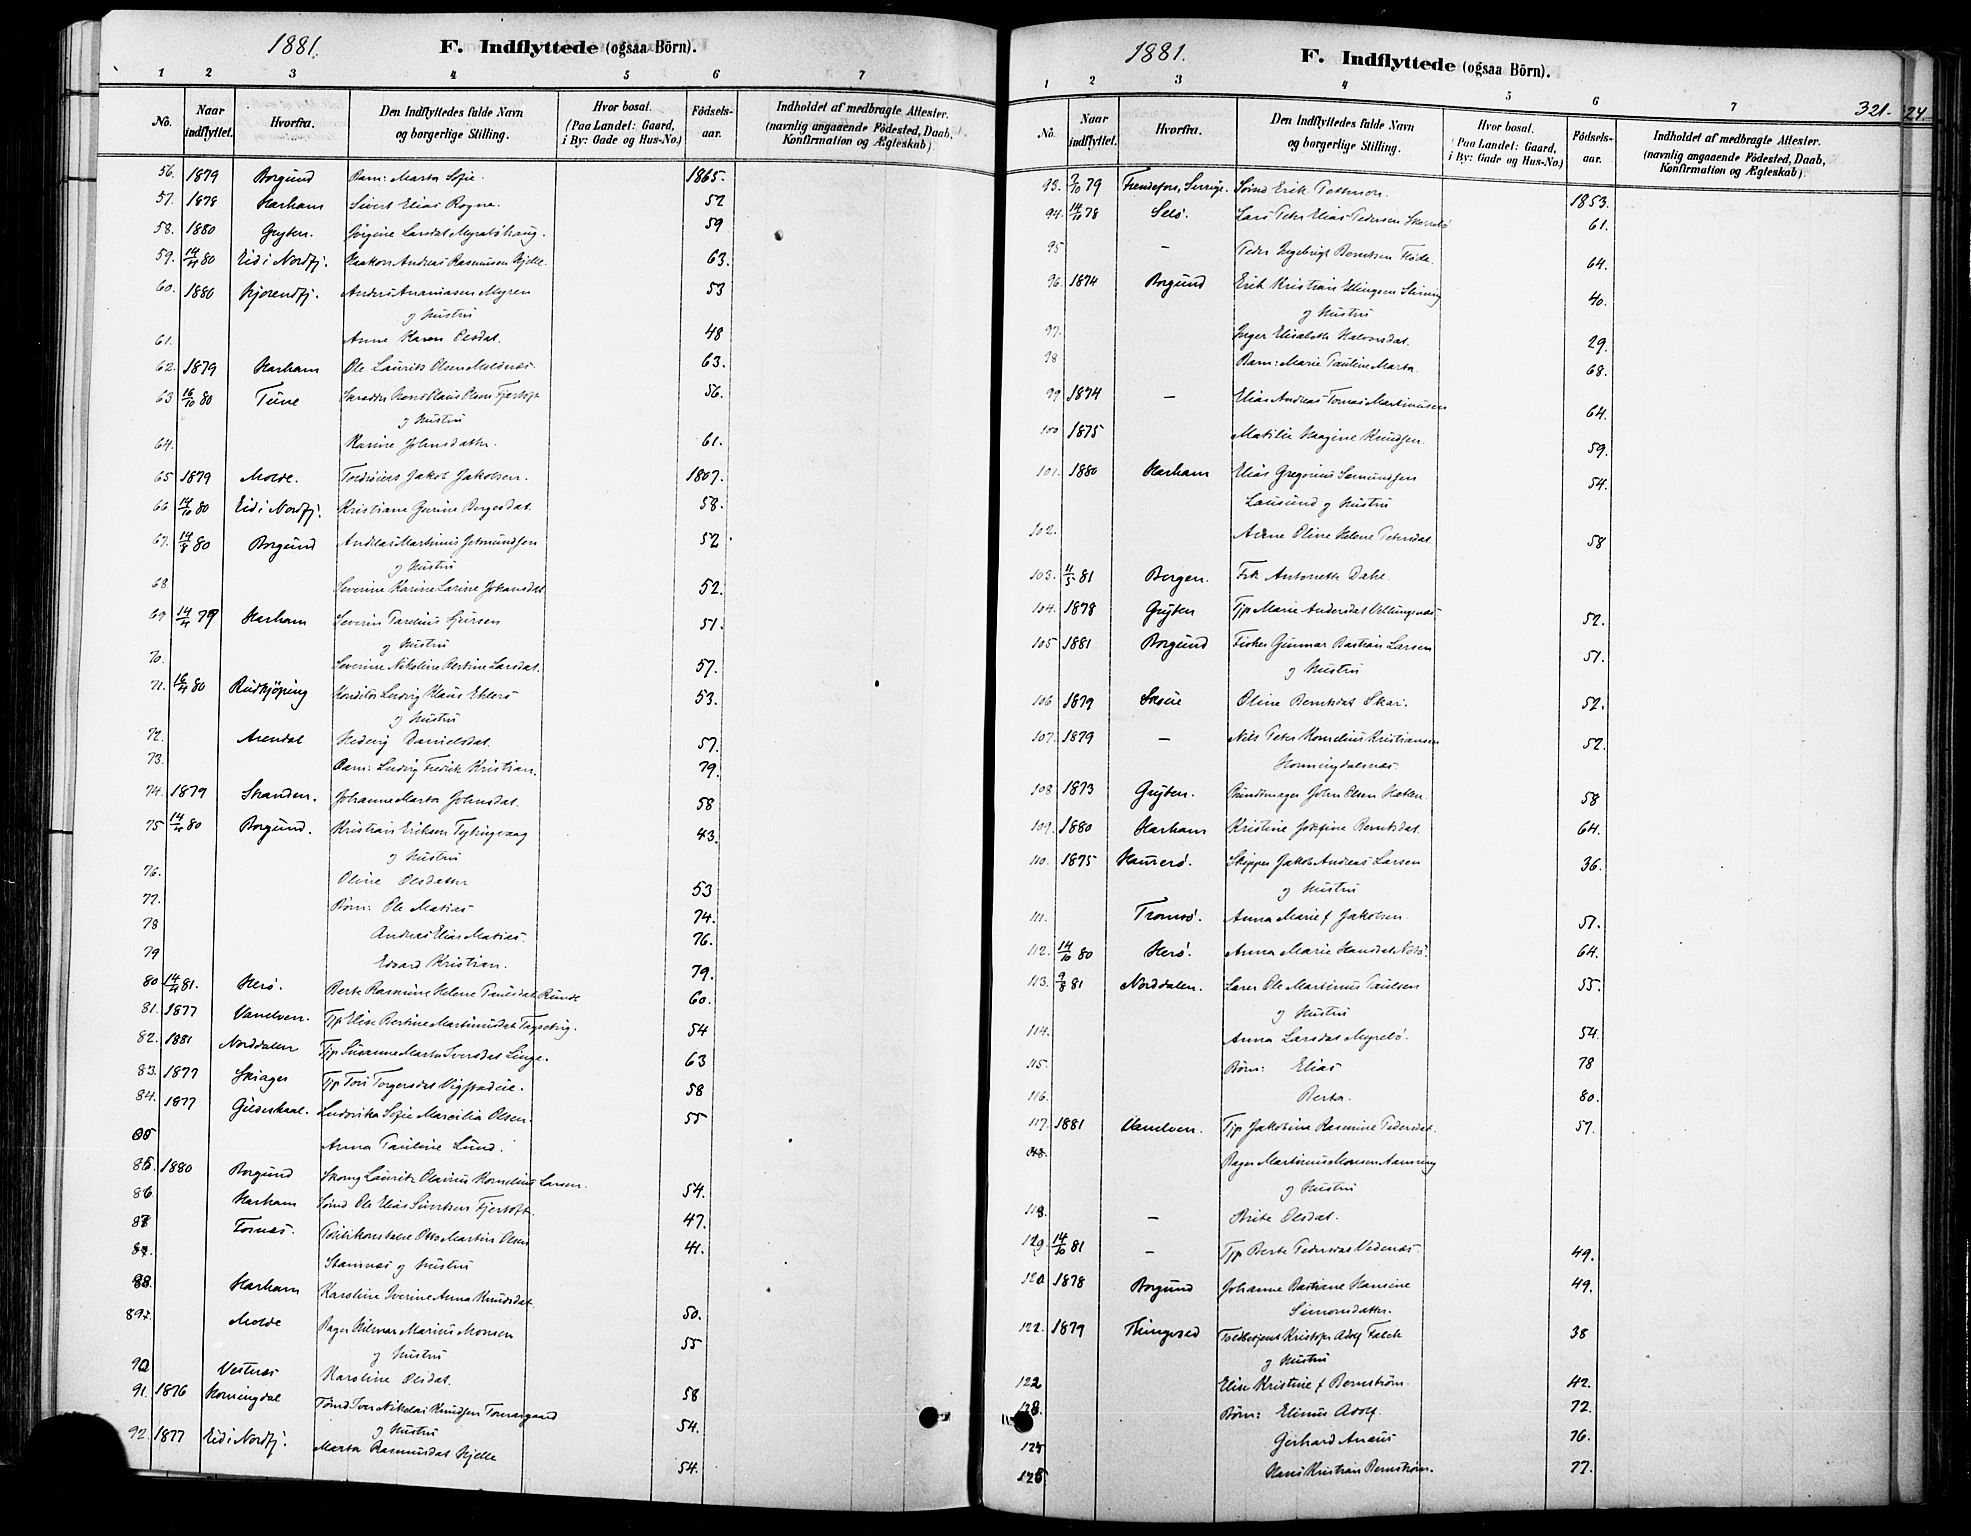 1881.
F. Indflyttede (ogsaa Börn).
1 2 3 4 5 6 7
No. Naar indflyttet. Hvorfra. Den Indflyttedes fulde Navn og borgerlige Stilling. Hvor bosat. (Paa Landet: Gaard, i By: Gade og Hus-No.) Fødsels-aar. Indholdet af medbragte Attester. (navnlig angaaende Födested, Daab, Konfirmation og Ægteskab)
56. 1879 Borgund Barn: Marta Sofie. 1865.
57. 1878 Harham Sivert Elias Rogne. 52
58. 1880 Gryten. Jørgine Larsdat 59
59. 14/4 80 Eid i Nordfj. Haakon Andreas Rasmusen Hjelle. 63.
60. 1880 Hjorendfj. Anders Ananiasen Myren 53
og Hustru
61. Anne Karen Olsdat. 48
62. 1879 Harham Ole Laurits Olsen Moldnæs. 63.
63 16/10 80 Tune Klaus Olsen Fjørtoft 56.
og Hustru
64. Karine Johnsdatter. 61.
65 1879 Molde. Jakob Jakobsen. 1807.
66 14/10 80 Eid i Nordfj. Kristiane Gurine Borgesdat. 58.
67. 14/8 80 Borgund Andreas Martinus Jetmundsen 52
og Hustru
68. Severine Karine Larine Johansdat 52.
69 14/4 79 Harham Severin Gjørsen 51.
og Hustru
70. Severine Nikoline Bertine Larsdat. 57.
71. 16/4 80 Rudkjøping Konditor Ludvig Klaus Ehlers 53.
og Hustru
72. Arendal Hedvig Danielsdat. 57.
73. Barn: Ludvig Fredrik Kristian. 79.
74. 1879 Stranden. Johanne Marta Johnsdat. 58
75 14/4 80 Borgund. Kristian Eriksen 43.
og Hustru
76. Oline Olsdatter 53
77. Børn: Ole Matias 74.
78 Andreas Elias Matias. 76.
79 Edvard Kristian. 79.
80 14/4 81. Herö. Berte Rasmine Helene Paulsdat Runde 60.
81. 1877 Vanelven. Tjp Elise Bertine Martinusdat 54
82. 1881 Norddalen Tjp Susanne Marta Iversdat Linge. 63
83. 1877 Skiager Tjp Tori Torgersdat 58
84. 1877 Gildeskaal. Ludovika Sofie Marcilia Olsen. 55
85 Anna Pauline Lund.
85. 1880 Borgund Laurits Olavius Kornelius Larsen. 54.
86. Harham Tømd Ole Elias Sivertsen Fjørtoft. 47.
87 Tornæs. Politikonstabel Otto Martin Olsen 41.
87. Stamnæs og Hustru
88. Harham Karoline Iverine Anna Knudsdat. 50.
89. Molde Bager Hilmar Marius Monsen 55
og Hustru
90 Vesteraas Karoline Olsdat. 58
91. 1876 Horningdal Tømd Iver Nikolai Knudsen Tomasgaard 54.
og Hustru
92. 1877 Eid i Nordfj. Marta Rasmusdat Hjelle 54.
1881.
F. Indflyttede (ogsaa Börn).
321. 24.
1 2 3 4 5 6 7
No. Naar indflyttet. Hvorfra. Den Indflyttedes fulde Navn og borgerlige Stilling. Hvor bosat. (Paa Landet: Gaard, i By: Gade og Hus-No.) Fødsels-aar. Indholdet af medbragte Attester. (navnlig angaaende Födested, Daab, Konfirmation og Ægteskab)
93. 7/10 79 Sverige. Erik Petterson. 1853.
94. 14/10 78 Selö. Lars Peter Elias Pedersen 61.
95 – Peder Ingebrigt Berntsen Flöde. 64.
96. 1874 Borgund Erik Kristian Ellingsen 40.
og Hustru
97. Inger Elisabeth Halvorsdat. 29.
98 Barn: Marie Pauline Marta. 68.
99 1874 – Elias Andreas Tomas Martinusen 64.
100 1875 Matilie Haagine Knudsen. 59.
101. 1880 Harham Elias Gregorius Samundsen 54.
Lausund og Hustru
102. Anne Oline Helene Petersdat 58
103. 11/5 81 Bergen. Frk Antonette Dahl.
104. 1878 Gryten Tjp Marie Andersdat 52.
105 1881 Borgund Fisker Gunnar Bastian Larsen 51.
og Hustru
106 1879 Skeie Oline Berntsdat Skar. 52.
107. 1879 – Nils Peter Kornelius Kristiansen 52.
Honningdalsnæs.
108 1873 Gryten. Buntmager John Olsen Hatlen. 58
109. 1880 Harham Kristine Josefine Berntsdat. 64.
110. 1875 Skipper Jakob Andreas Larsen 36.
og Hustru
111. Tromsö. Anna Marie f Jakobsen. 51.
112. 14/10 80 Herö. Anna Marie Hansdat 64.
113. 9/8 81 Norddalen. Ole Martinus Paulsen 55.
og Hustru
114. Anna Larsdat Myrebö. 54.
115. Børn: Elias 78
116. Berta. 80.
117. 1881 Vanelven. Tjp Jakobine Rasmine Pedersdat. 57.
118. Bager Martinus Monsen
og Hustru
118. – Brite Olsdat.
119 14/10 81 – Tjp Berte Pedersdat Vedenæs. 49.
120 1878 Borgund Johanne Bastiane Hansine 49.
Simonsdatter.
122. 1879 Thingvold Toldbetjent Kristofer Adolf Falch 38
og Hustru
122 Elise Kristine f Bernstrøm. 42.
123. Børn: Elinus Adolf. 72.
125 Gerhard 76.
125. Hans Kristian Bernstrøm. 77.